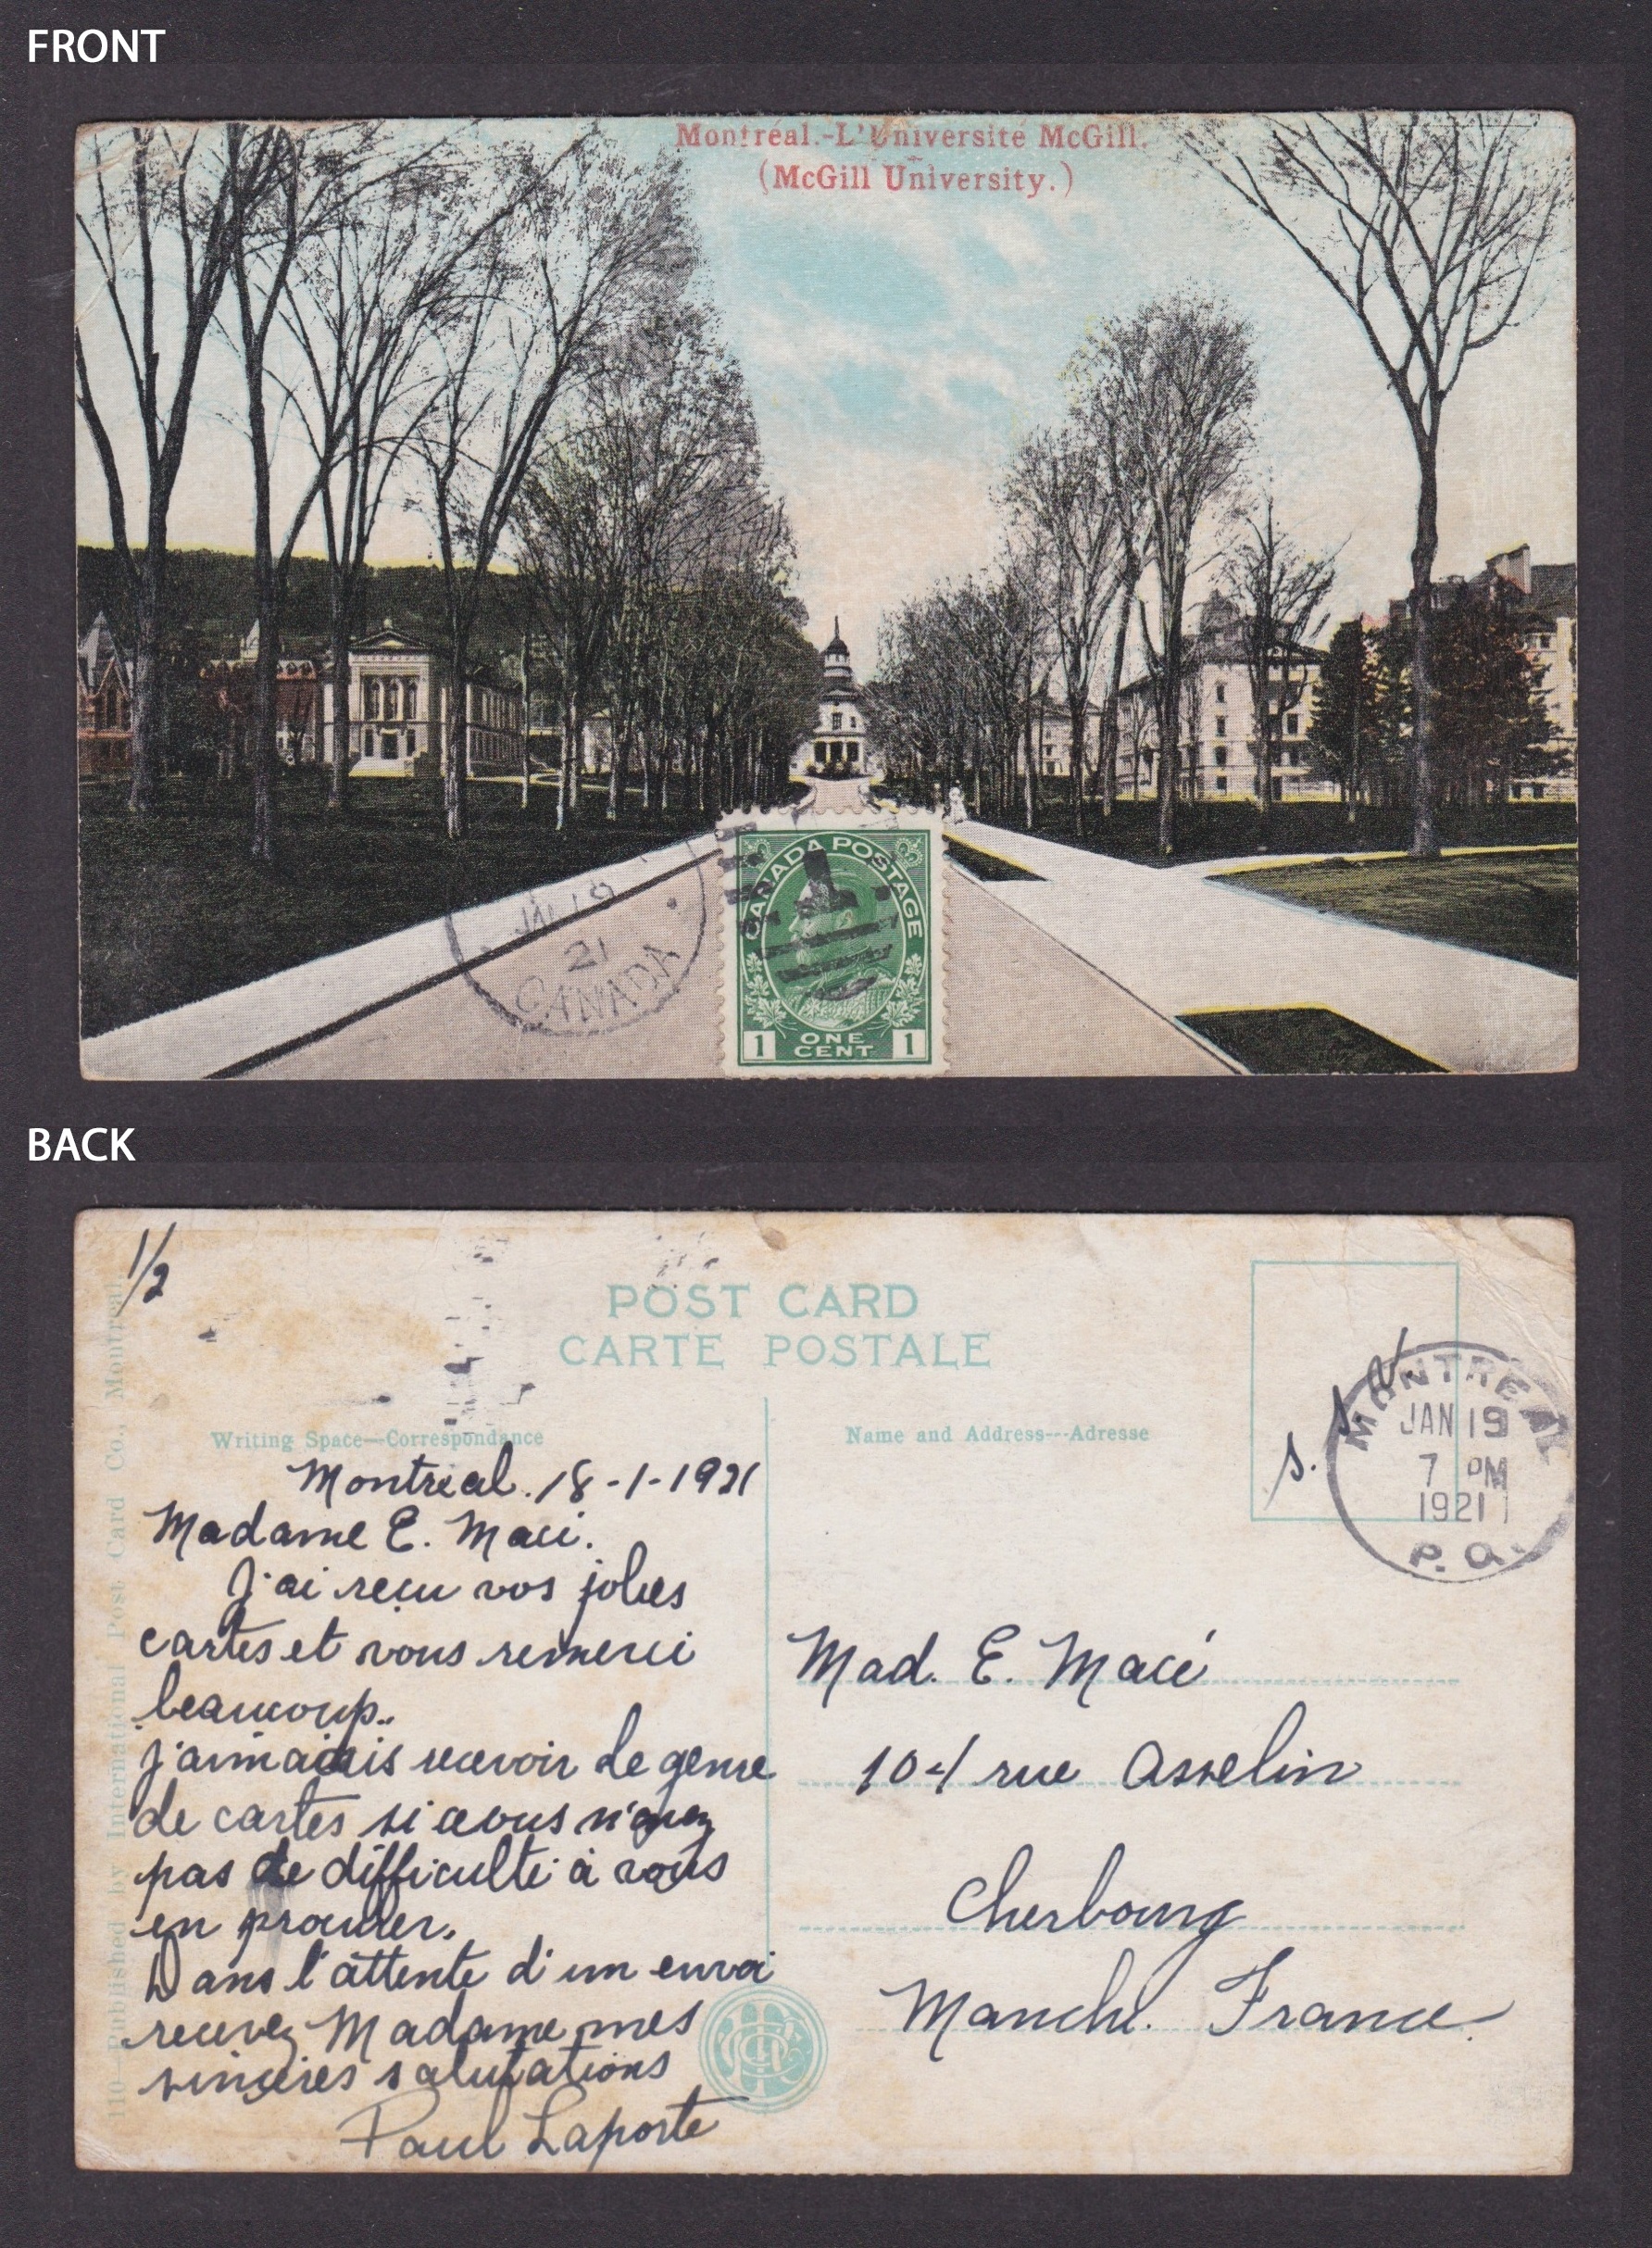 FRONT
Montréal.-L'Université McGill.
(McGill University.)
JAN 19
21
CANADA
1
CANADA POSTAGE
1 ONE CENT 1
BACK
1/2
POST CARD
CARTE POSTALE
Writing Space—Correspondance
Name and Address---Adresse
110—Published by International Post Card Co., Montreal.
MONTREAL
JAN 19
7 PM
1921
P.Q.
Montreal. 18-1-1921
Madame E. Macé.
J'ai reçu vos jolies
cartes et vous remerci
beaucoup..
J'aimerais recevoir de genre
de cartes si vous n'avez
pas de difficulté à vous
en procurer.
Dans l'attente d'un envoi
recevez Madame mes
sincères salutations
Paul Laporte
Mad. E. Macé
104 rue Asselin
Cherbourg
Manche. France.